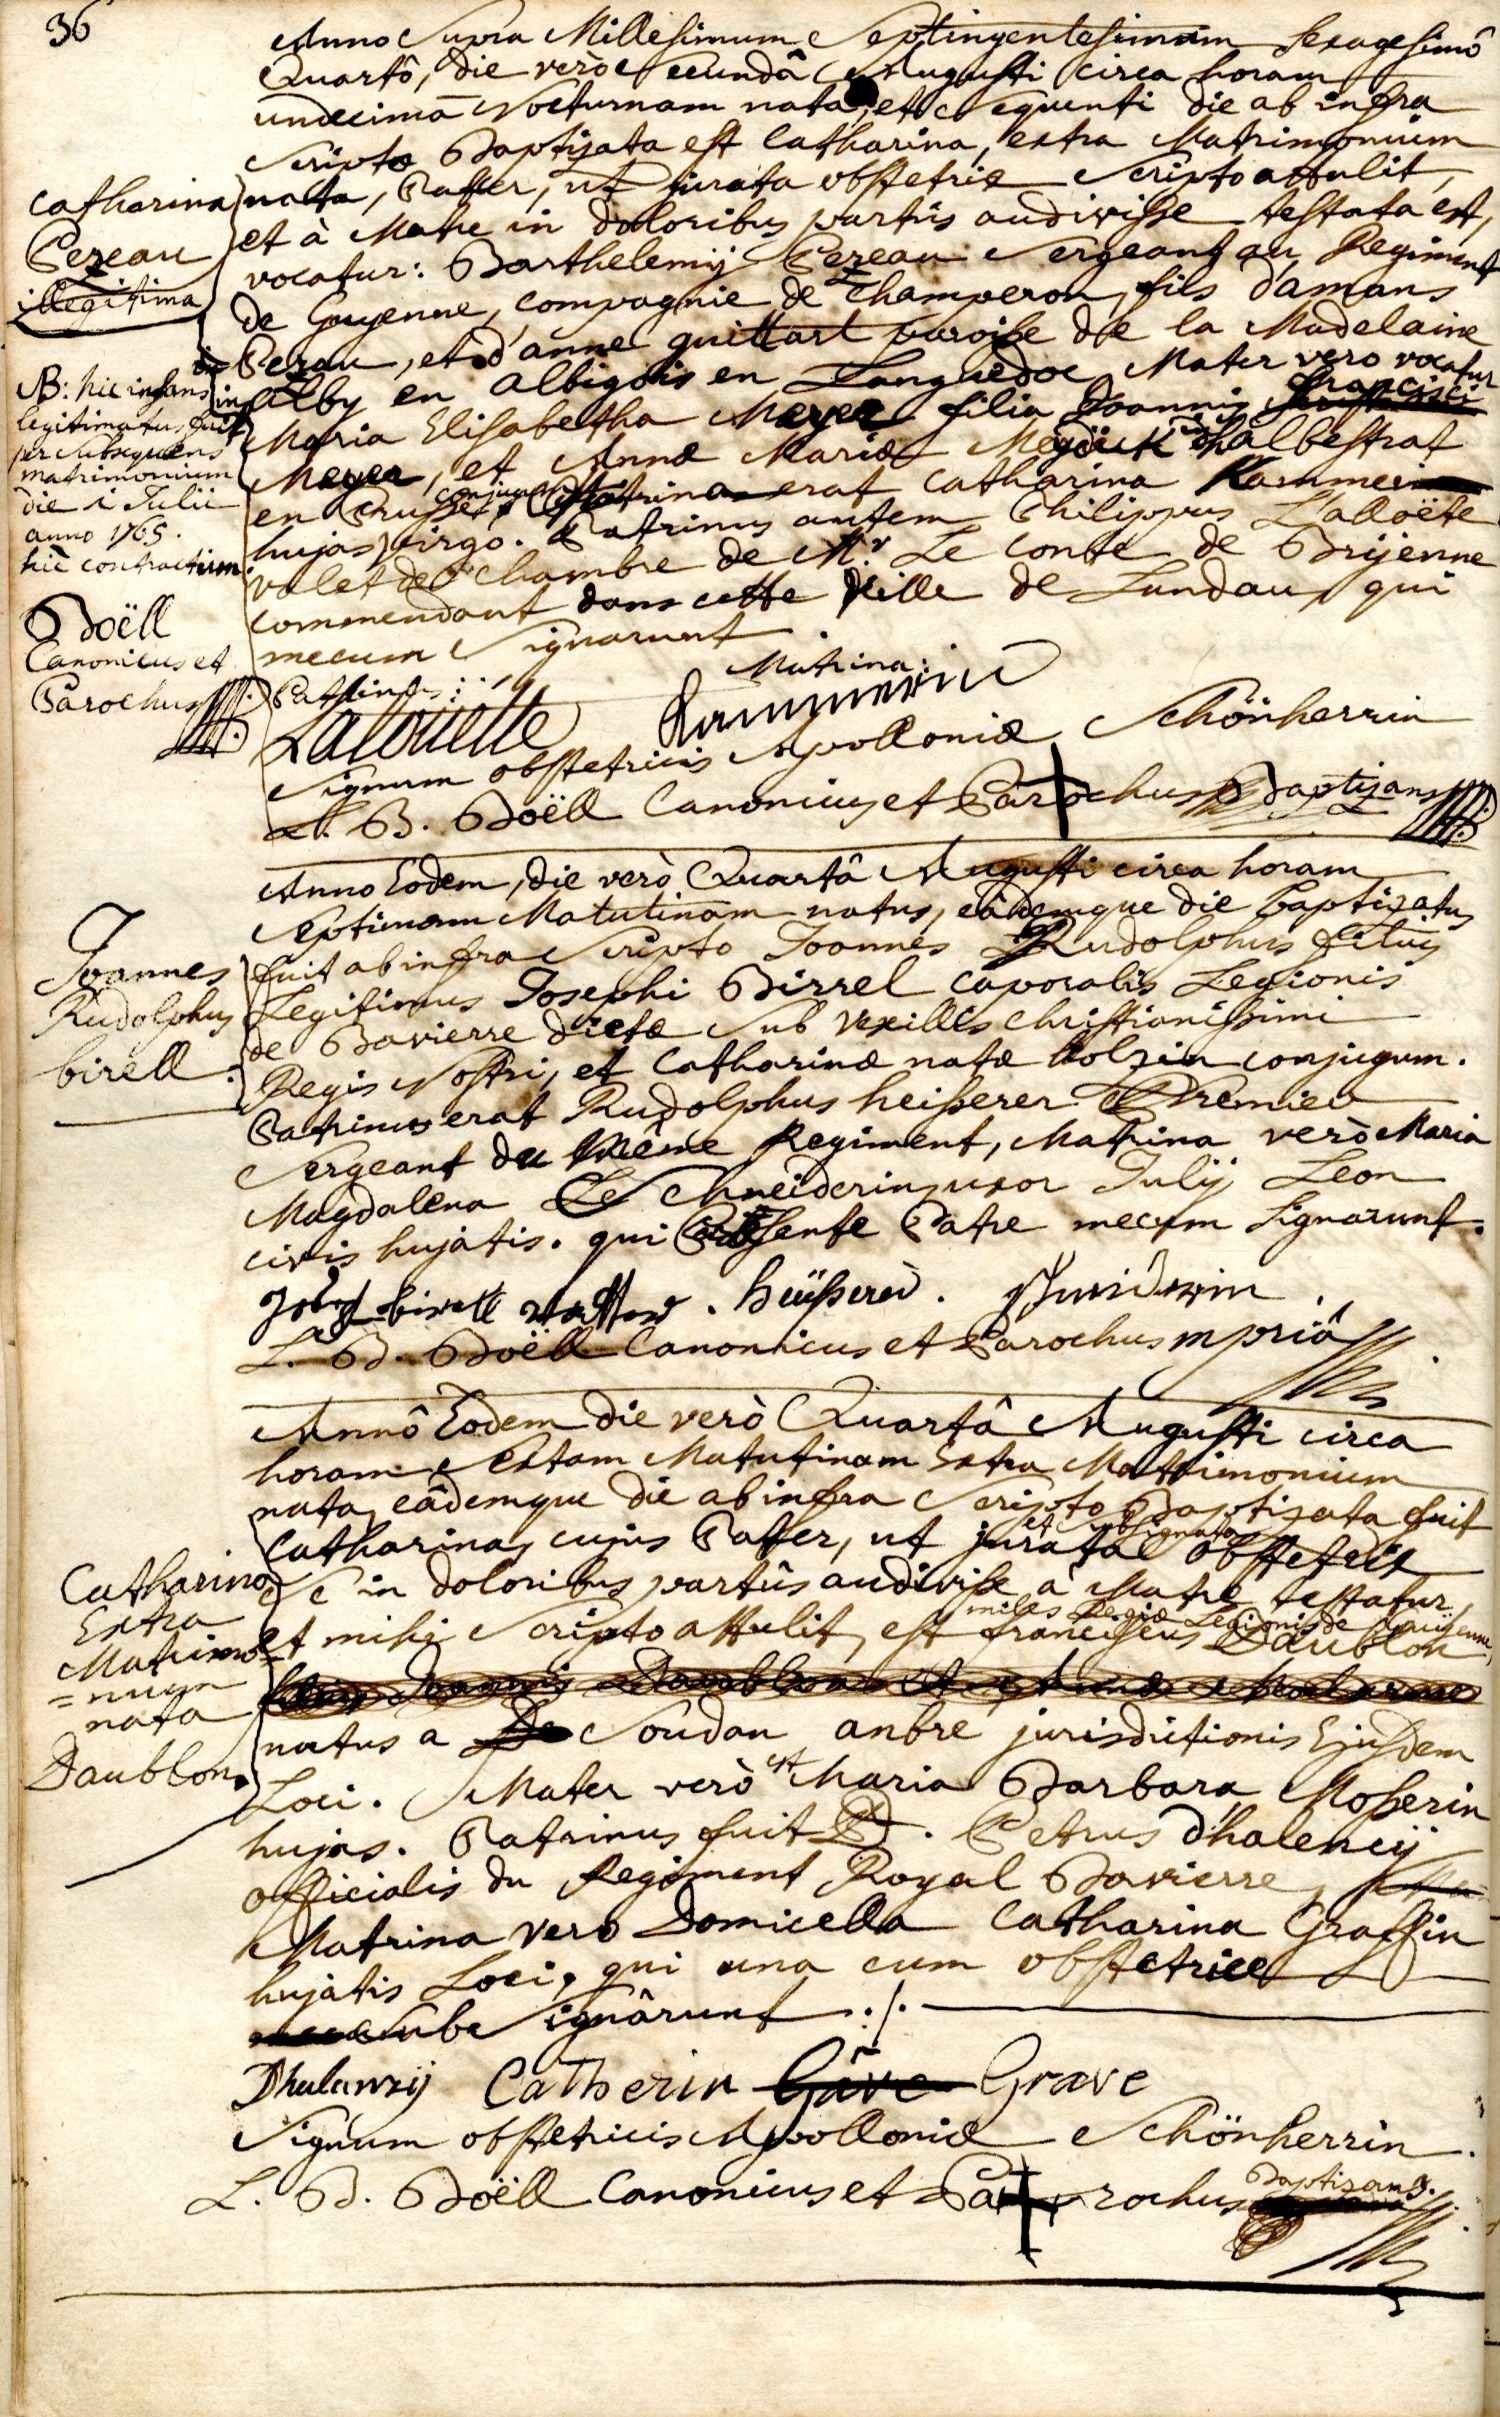 36
Anno Supra Millesimum Septingentesimum Sexagesimô
Quartô, die verò Secundâ Augusti circa horam
undecimã Nocturnam nata, et Sequenti die ab infra
Scripto Baptizata est Catharina, extra Matrimonium
nata, Patter, ut jurata obstetrix Scripto attulit,
et à Matre in doloribus partûs audivisse testata est,
vocatur: Barthelemÿ Pezeau Sergeant au Regiment
de Guyenne, compagnie de Champeron, fils d'amans
Pezau, et d'anne guittart paroisse de la Madelaine
in Alby en Albigois en Languedoc, Mater vero vocatur
Maria Elisabetha Meyer filia Joannis Francisci
Meyer, et Annæ Mariæ in halbestrat
en Prusse, conjugum Matrina erat Catharina Kammerin
hujas virgo. Patrinus autem Philippus L'alloëte
valet de Chambre de Mr. Le Conte de Brijenne
commendant dans cette Ville de Landau, qui
mecum Signarunt
Catharina
Pezeau
illegitima
NB: hic infans
legitimatus fuit
per Subsequens
matrimonium
die 1 Julii
anno 1765.
hîc contractum.
Doëll
Canonicus et
Parochus
Patrinus: Matrina:
Lalouette Kammerin
Signum obstetricis Apolloniæ Schönherrin
L. B. Doëll Canonicus et Parochus Baptizans
Anno Eodem, die verò Quartâ Augusti circa horam
Septimam Matutinam natus, eâdemque die baptizatus
fuit ab infra Scripto Joannes Rudolphus filius
Legitimus Josephi Birrel caporalis Legionis
de Bavierre dictæ Sub vexillis Christianissimi
Regis Nostri, et Catharinæ natæ holzin conjugum.
Patrinus erat Rudolphus heisserer Premier
Sergeant du même Regiment, Matrina verò Maria
Magdalena Schneiderin, uxor Julij Leon
civis hujatis. qui Præsente Patre mecum Signarunt.
Joannes
Rudolphus
birell.
birell vatter. heüsserer. Schneiderin.
L. B. Doëll Canonicus et Parochus mpriâ
Annô Eodem die verò Quartâ Augusti circa
horam Sextam Matutinam Extra Matrimonium
nata, eâdemque die ab infra Scripto Baptizata fuit
Catharina, cujus Patter, ut jurata et obsignata obstetrix
Se in doloribus partûs audivisse a Matre testatur,
et mihi Scripto attulit, est franciscus Daublon miles Regiæ Legionis de Guÿenne,
natus a Soudan anbre jurisdictionis Ejusdem
Loci. Mater verò est Maria Barbara Mosserin
hujas. Patrinus fuit D. Petrus d'halencÿ
officialis du Regiment Royal Bavierre,
Matrina vero Domicella Catharina Graffin
hujatis Loci, qui una cum obstetrice
Sub Signârunt ./.
Catharina
Extra
Matrimo=
=nium
nata
Daublon.
Dhalanzÿ Catherin Gave Grave
Signum obstetricis Apolloniæ Schönherrin.
L. B. Doëll Canonicus et Parochus Baptizans.